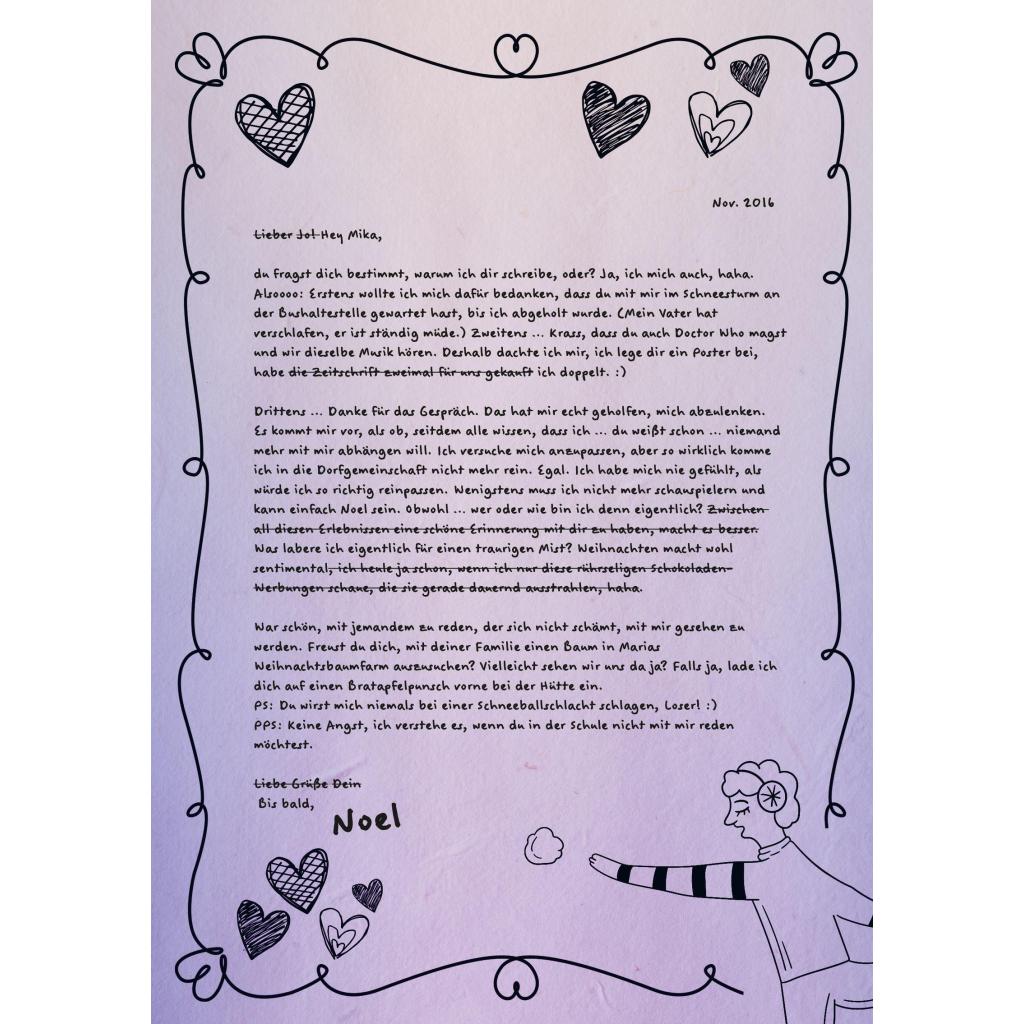 Nov. 2016
Lieber Jo! Hey Mika,
du fragst dich bestimmt, warum ich dir schreibe, oder? Ja, ich mich auch, haha.
Alsoooo: Erstens wollte ich mich dafür bedanken, dass du mit mir im Schneesturm an
der Bushaltestelle gewartet hast, bis ich abgeholt wurde. (Mein Vater hat
verschlafen, er ist ständig müde.) Zweitens ... Krass, dass du auch Doctor Who magst
und wir dieselbe Musik hören. Deshalb dachte ich mir, ich lege dir ein Poster bei,
habe die Zeitschrift zweimal für uns gekauft ich doppelt. :)
Drittens ... Danke für das Gespräch. Das hat mir echt geholfen, mich abzulenken.
Es kommt mir vor, als ob, seitdem alle wissen, dass ich ... du weißt schon ... niemand
mehr mit mir abhängen will. Ich versuche mich anzupassen, aber so wirklich komme
ich in die Dorfgemeinschaft nicht mehr rein. Egal. Ich habe mich nie gefühlt, als
würde ich so richtig reinpassen. Wenigstens muss ich nicht mehr schauspielern und
kann einfach Noel sein. Obwohl ... wer oder wie bin ich denn eigentlich? Zwischen
all diesen Erlebnissen eine schöne Erinnerung mit dir zu haben, macht es besser.
Was labere ich eigentlich für einen traurigen Mist? Weihnachten macht wohl
sentimental, ich heule ja schon, wenn ich nur diese rührseligen Schokoladen-
Werbungen schaue, die sie gerade dauernd ausstrahlen, haha.
War schön, mit jemandem zu reden, der sich nicht schämt, mit mir gesehen zu
werden. Freust du dich, mit deiner Familie einen Baum in Marias
Weihnachtsbaumfarm auszusuchen? Vielleicht sehen wir uns da ja? Falls ja, lade ich
dich auf einen Bratapfelpunsch vorne bei der Hütte ein.
PS: Du wirst mich niemals bei einer Schneeballschlacht schlagen, Loser! :)
PPS: Keine Angst, ich verstehe es, wenn du in der Schule nicht mit mir reden
möchtest.
Liebe Grüße Dein
Bis bald,
Noel